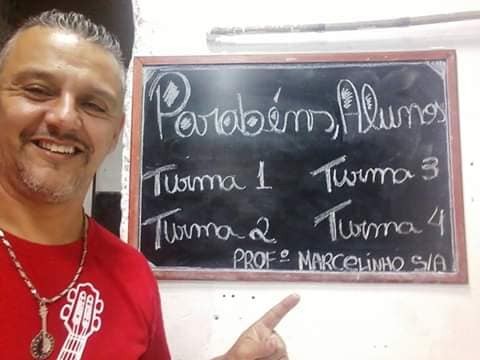 Parabéns, Alunos
Turma 1 Turma 3
Turma 2 Turma 4
PROFº MARCELINHO S/A